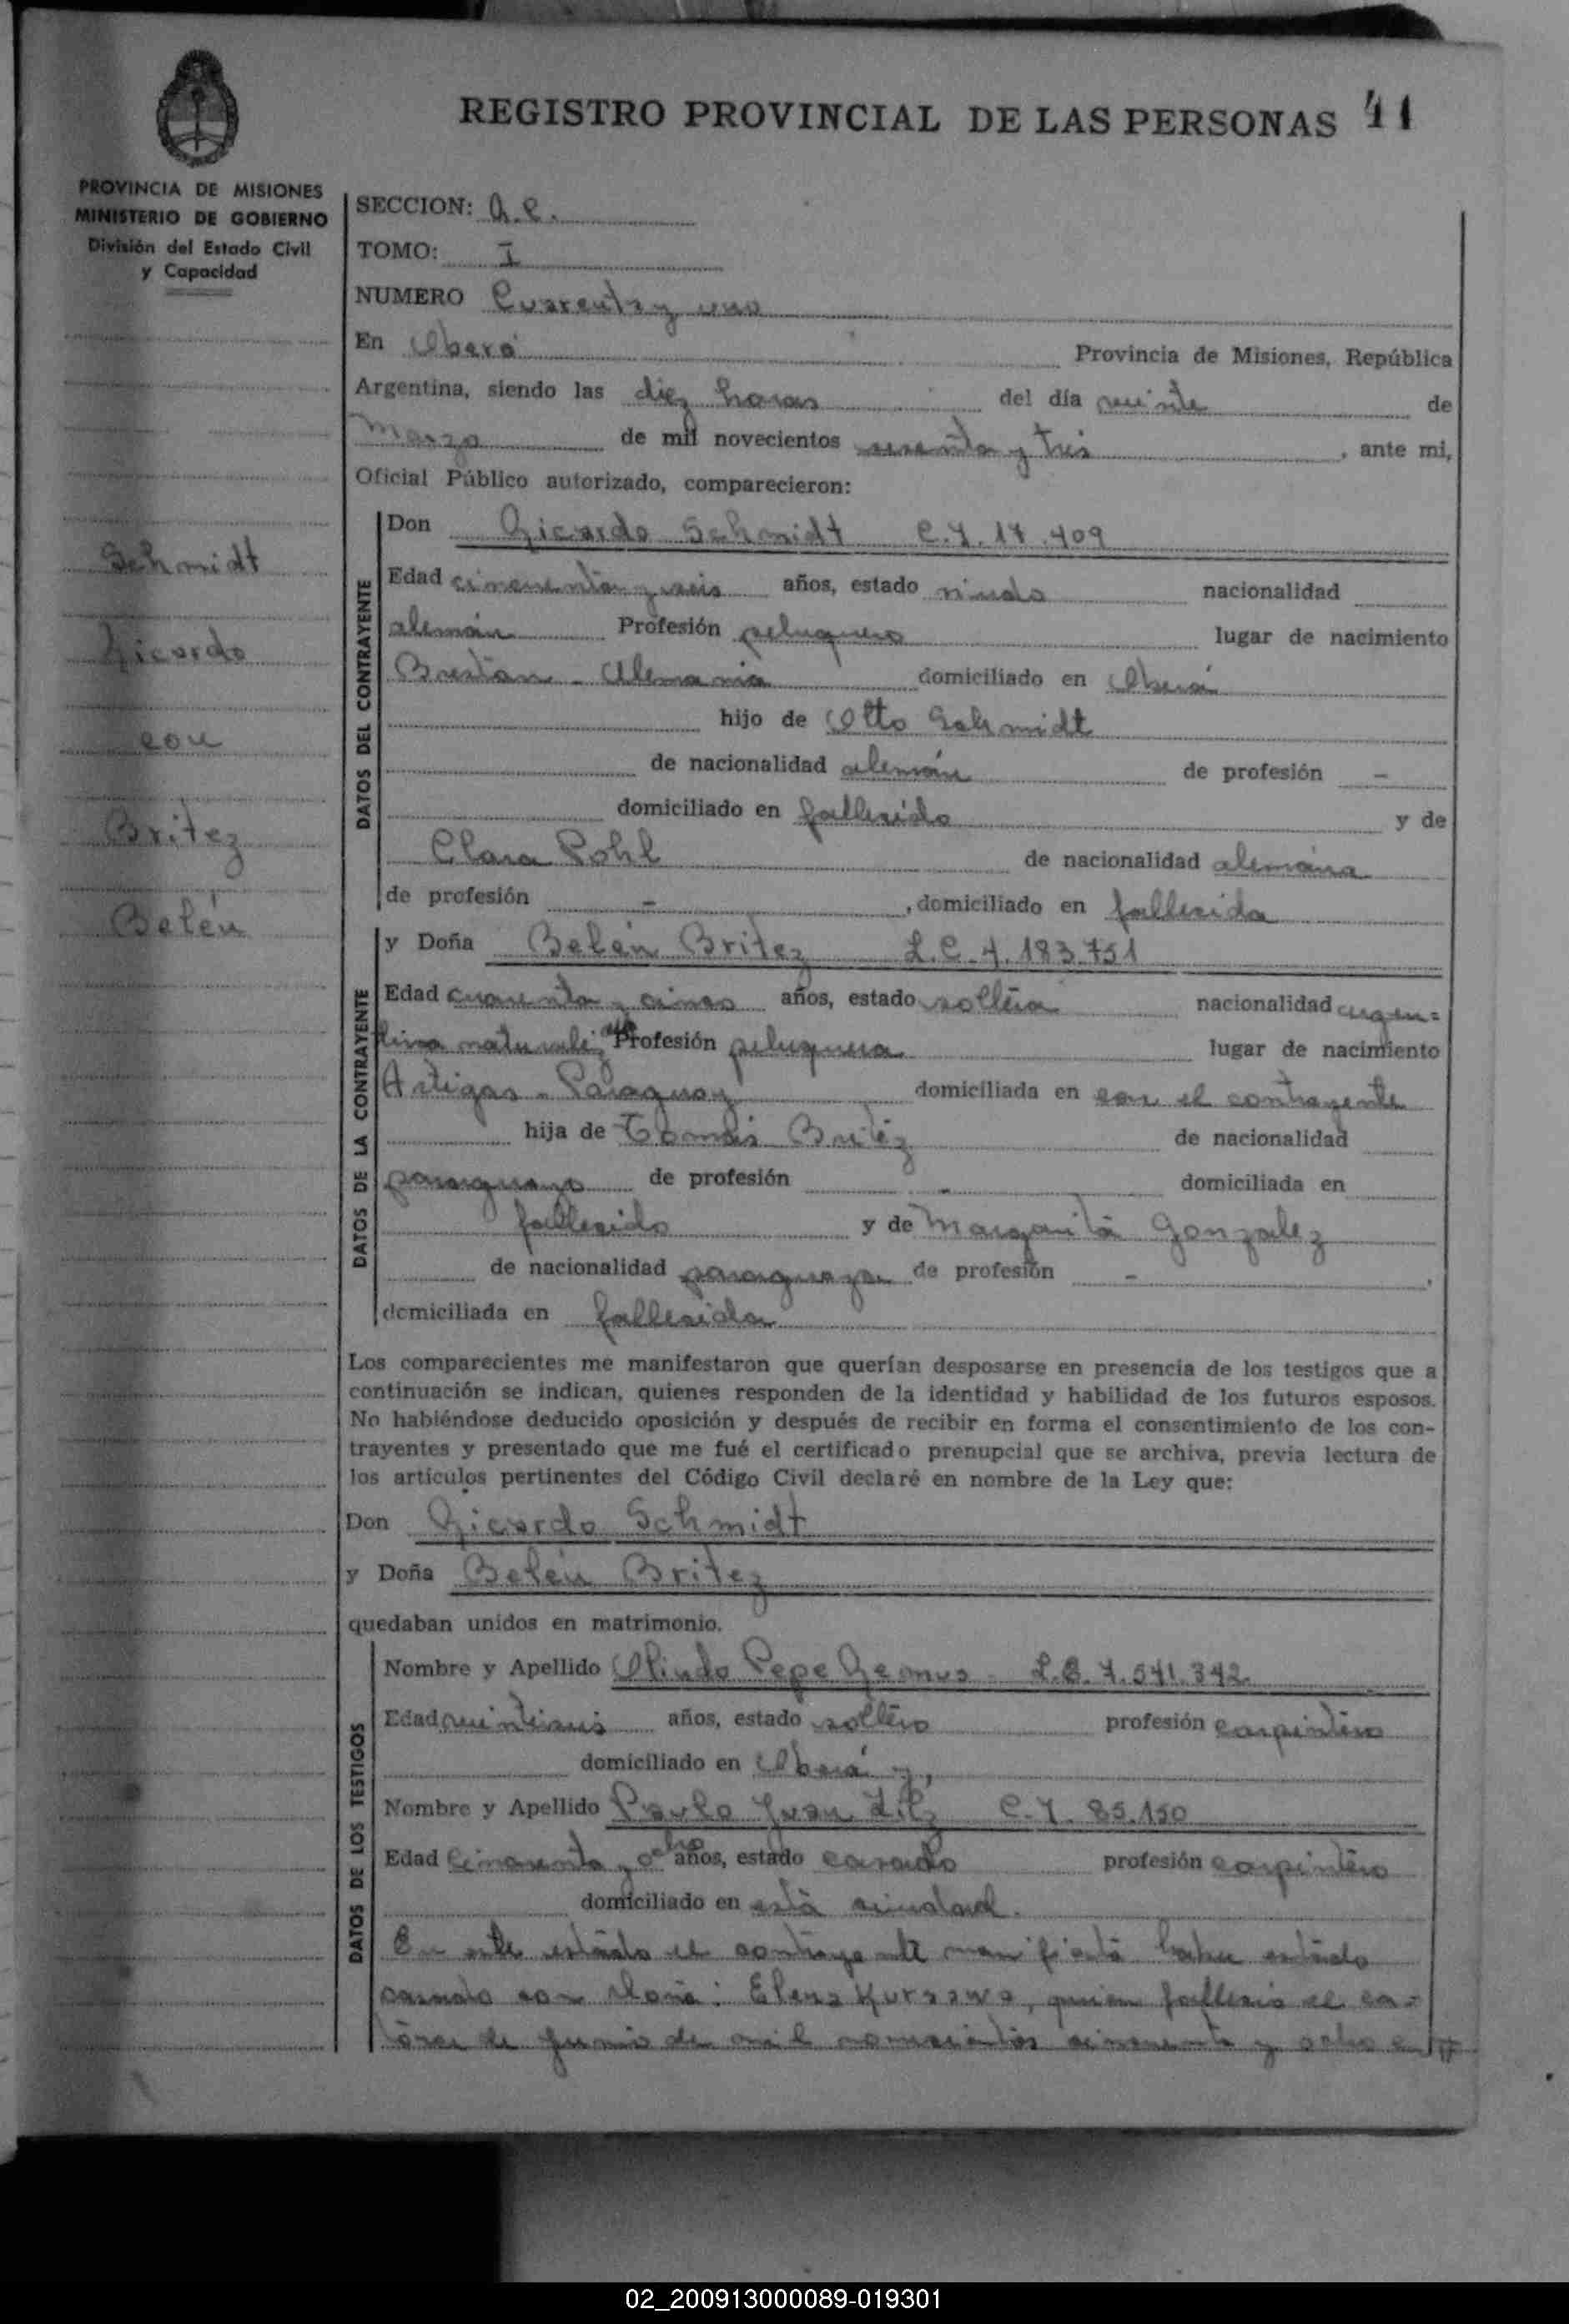 REGISTRO PROVINCIAL DE LAS PERSONAS 41
PROVINCIA DE MISIONES
MINISTERIO DE GOBIERNO
División del Estado Civil
y Capacidad
Schmidt
Ricardo
con
Britez
Belén
SECCION: A.C.
TOMO: I
NUMERO Cuarenta y uno
En Oberá Provincia de Misiones, República
Argentina, siendo las diez horas del día veinte de
Marzo de mil novecientos sesenta y tres, ante mi,
Oficial Público autorizado, comparecieron:
DATOS DEL CONTRAYENTE
Don Ricardo Schmidt C.I. 17.409
Edad cincuenta y seis años, estado viudo nacionalidad
alemán Profesión peluquero lugar de nacimiento
Alemania domiciliado en Oberá
hijo de Otto Schmidt
de nacionalidad alemán de profesión -
domiciliado en fallecido y de
Clara Pohl de nacionalidad alemana
de profesión - , domiciliado en fallecida
DATOS DE LA CONTRAYENTE
y Doña Belén Britez L.C. 4.183.751
Edad cuarenta y cinco años, estado soltera nacionalidad argen=
tina naturalizada Profesión peluquera lugar de nacimiento
Artigas - Paraguay domiciliada en con el contrayente
hija de Tomás Britez de nacionalidad
paraguayo de profesión - domiciliada en
fallecido y de Margarita Gonzalez
de nacionalidad paraguaya de profesión - ,
domiciliada en fallecida
Los comparecientes me manifestaron que querían desposarse en presencia de los testigos que a
continuación se indican, quienes responden de la identidad y habilidad de los futuros esposos.
No habiéndose deducido oposición y después de recibir en forma el consentimiento de los con-
trayentes y presentado que me fué el certificado prenupcial que se archiva, previa lectura de
los articulos pertinentes del Código Civil declaré en nombre de la Ley que:
Don Ricardo Schmidt
y Doña Belén Britez
quedaban unidos en matrimonio.
DATOS DE LOS TESTIGOS
Nombre y Apellido Olindo Pepe L.E. 7.541.342
Edad veintiseis años, estado soltero profesión carpintero
domiciliado en Oberá y,
Nombre y Apellido Paulo Juan C.I. 85.150
Edad Cincuenta y ocho años, estado casado profesión carpintero
domiciliado en esta ciudad.
En este estado el contrayente manifiesta haber estado
casado con doña: Elena Kurzawa, quien falleció el ca=
torce de Junio de mil novecientos cincuenta y ocho en
02_200913000089-019301